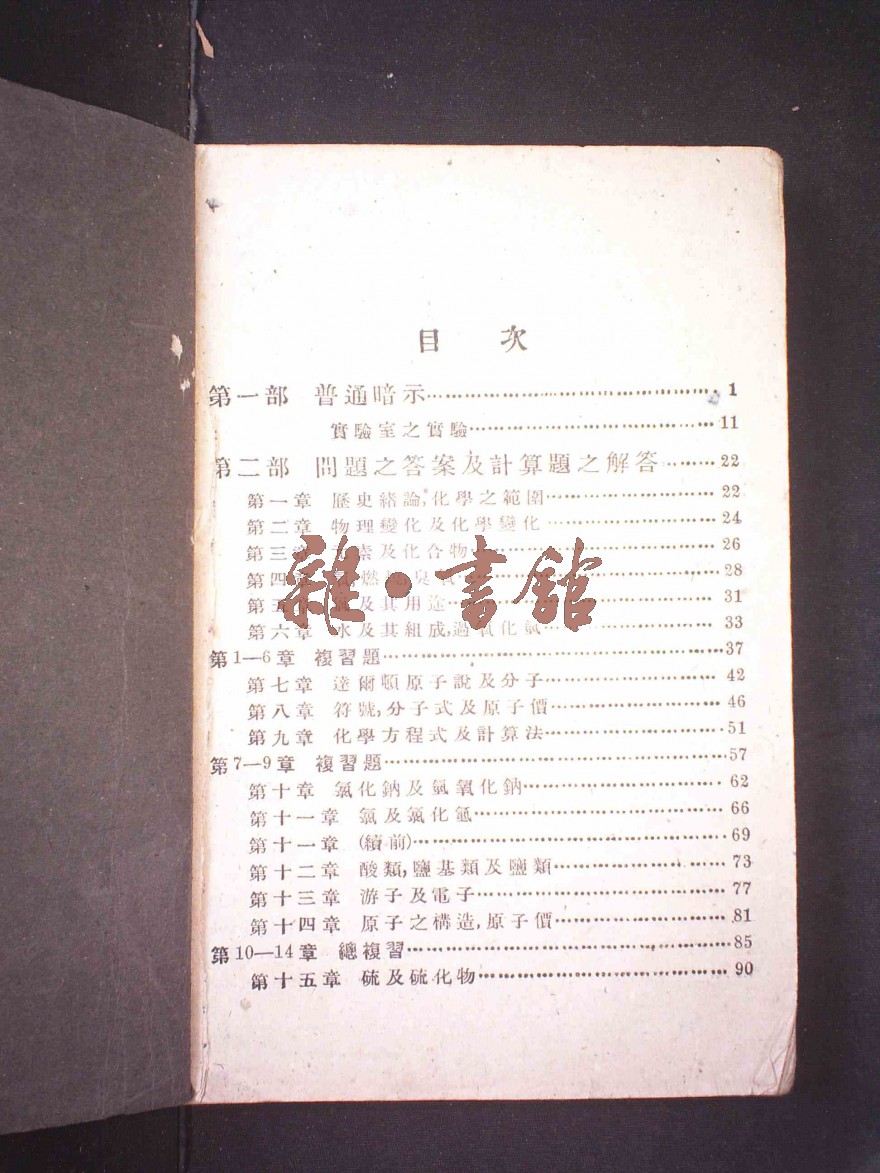 目 次
第一部 普通暗示 1
實驗室之實驗 11
第二部 問題之答案及計算題之解答 22
第一章 歷史緒論,化學之範圍 22
第二章 物理變化及化學變化 24
第三 素及化合物 26
第四 燃 臭 28
第五 及其用途 31
第六章 水及其組成,過氧化氫 33
第1—6章 複習題 37
第七章 達爾頓原子說及分子 42
第八章 符號,分子式及原子價 46
第九章 化學方程式及計算法 51
第7—9章 複習題 57
第十章 氯化鈉及氫氧化鈉 62
第十一章 氯及氯化氫 66
第十一章 (續前) 69
第十二章 酸類,鹽基類及鹽類 73
第十三章 游子及電子 77
第十四章 原子之構造,原子價 81
第10—14章 總複習 85
第十五章 硫及硫化物 90
雜·書館